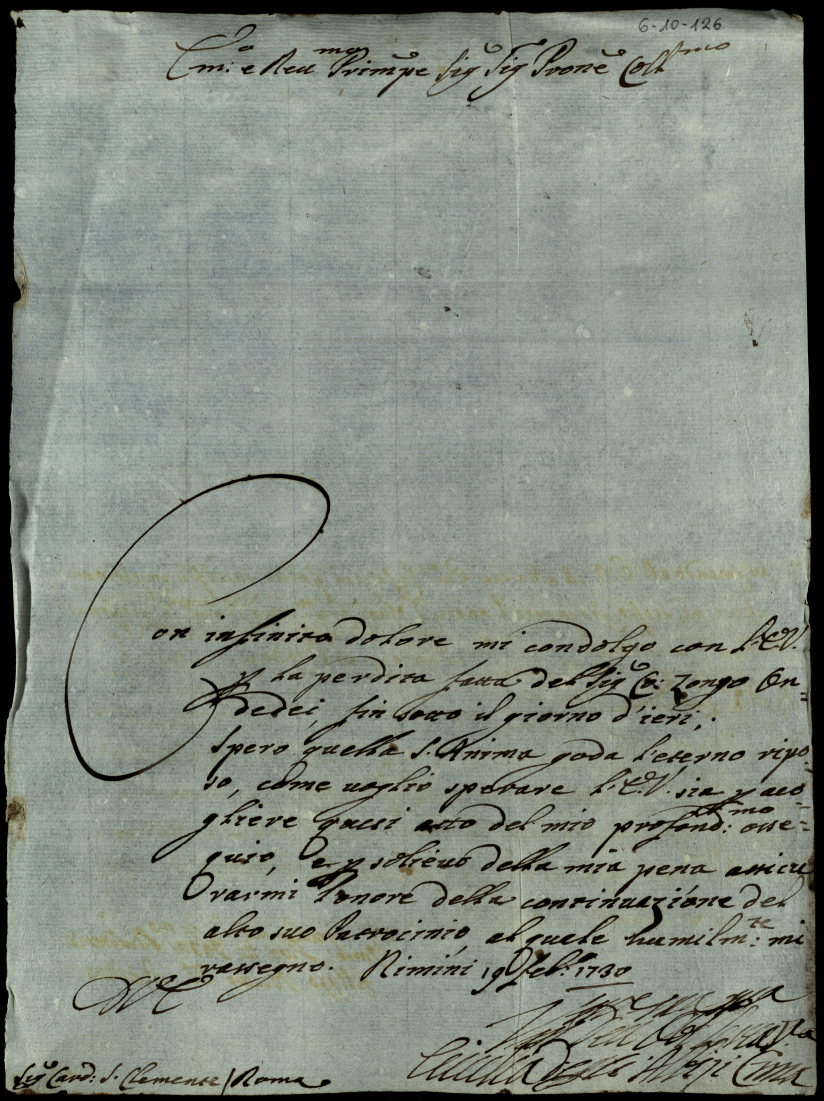 6-10-126
Em:o e Reu:mo Primpe Sig.r Sig.r Prone Coll:mo
Con infinito dolore mi condolgo con l'E.V.
p la perdita fatta del Sig.r C: Zongo On=
dedei, fin sotto il giorno d'ieri;
spero quella S. Anima goda l'eterno ripo=
so, come uoglio sperare l'E.V. sia p acco=
gliere questi atto del mio profond:mo osse=
quio, e p solieuo della mia pena assicu
rarmi l'onore della continuazione del
alto suo Patrocinio, al quale humilm:te mi
rassegno. Rimini 19 Feb: 1730
D V E
Sig.r Card: S. Clemente / Roma